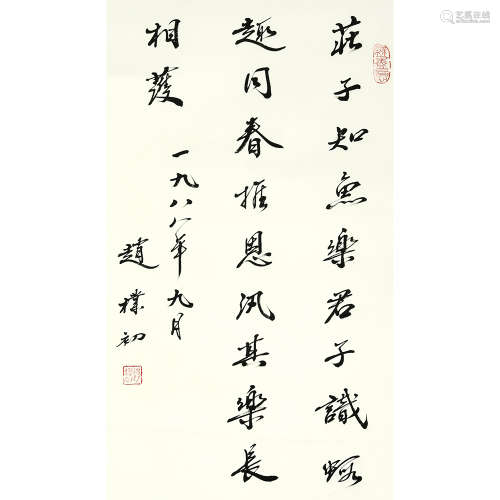 莊子知魚樂君子識蝦
趣同眷推恩汎其樂長
相護
一九八八年九月
趙樸初
易拍全球